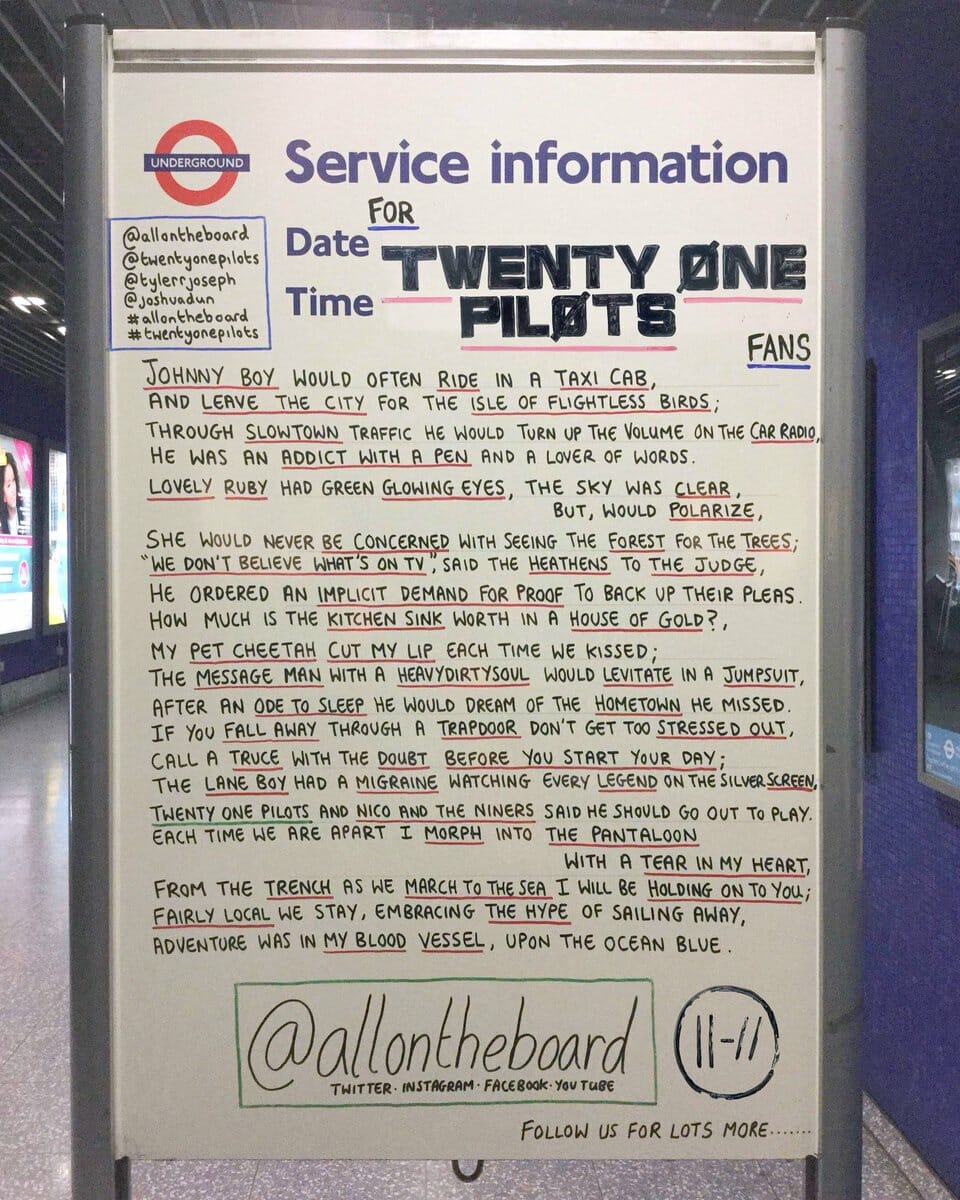 UNDERGROUND
Service information
FOR
Date
TWENTY ØNE
Time
PILØTS
FANS
@allontheboard
@twentyonepilots
@tylerrjoseph
@joshuadun
#allontheboard
#twentyonepilots
JOHNNY BOY WOULD OFTEN RIDE IN A TAXI CAB,
AND LEAVE THE CITY FOR THE ISLE OF FLIGHTLESS BIRDS;
THROUGH SLOWTOWN TRAFFIC HE WOULD TURN UP THE VOLUME ON THE CAR RADIO,
HE WAS AN ADDICT WITH A PEN AND A LOVER OF WORDS.
LOVELY RUBY HAD GREEN GLOWING EYES, THE SKY WAS CLEAR,
BUT, WOULD POLARIZE,
SHE WOULD NEVER BE CONCERNED WITH SEEING THE FOREST FOR THE TREES;
"WE DON'T BELIEVE WHAT'S ON TV", SAID THE HEATHENS TO THE JUDGE,
HE ORDERED AN IMPLICIT DEMAND FOR PROOF TO BACK UP THEIR PLEAS.
HOW MUCH IS THE KITCHEN SINK WORTH IN A HOUSE OF GOLD?,
MY PET CHEETAH CUT MY LIP EACH TIME WE KISSED;
THE MESSAGE MAN WITH A HEAVYDIRTYSOUL WOULD LEVITATE IN A JUMPSUIT,
AFTER AN ODE TO SLEEP HE WOULD DREAM OF THE HOMETOWN HE MISSED.
IF YOU FALL AWAY THROUGH A TRAPDOOR DON'T GET TOO STRESSED OUT,
CALL A TRUCE WITH THE DOUBT BEFORE YOU START YOUR DAY;
THE LANE BOY HAD A MIGRAINE WATCHING EVERY LEGEND ON THE SILVER SCREEN,
TWENTY ONE PILOTS AND NICO AND THE NINERS SAID HE SHOULD GO OUT TO PLAY.
EACH TIME WE ARE APART I MORPH INTO THE PANTALOON
WITH A TEAR IN MY HEART,
FROM THE TRENCH AS WE MARCH TO THE SEA I WILL BE HOLDING ON TO YOU;
FAIRLY LOCAL WE STAY, EMBRACING THE HYPE OF SAILING AWAY,
ADVENTURE WAS IN MY BLOOD VESSEL, UPON THE OCEAN BLUE.
@allontheboard
TWITTER · INSTAGRAM · FACEBOOK · YOUTUBE
||-//
FOLLOW US FOR LOTS MORE.......